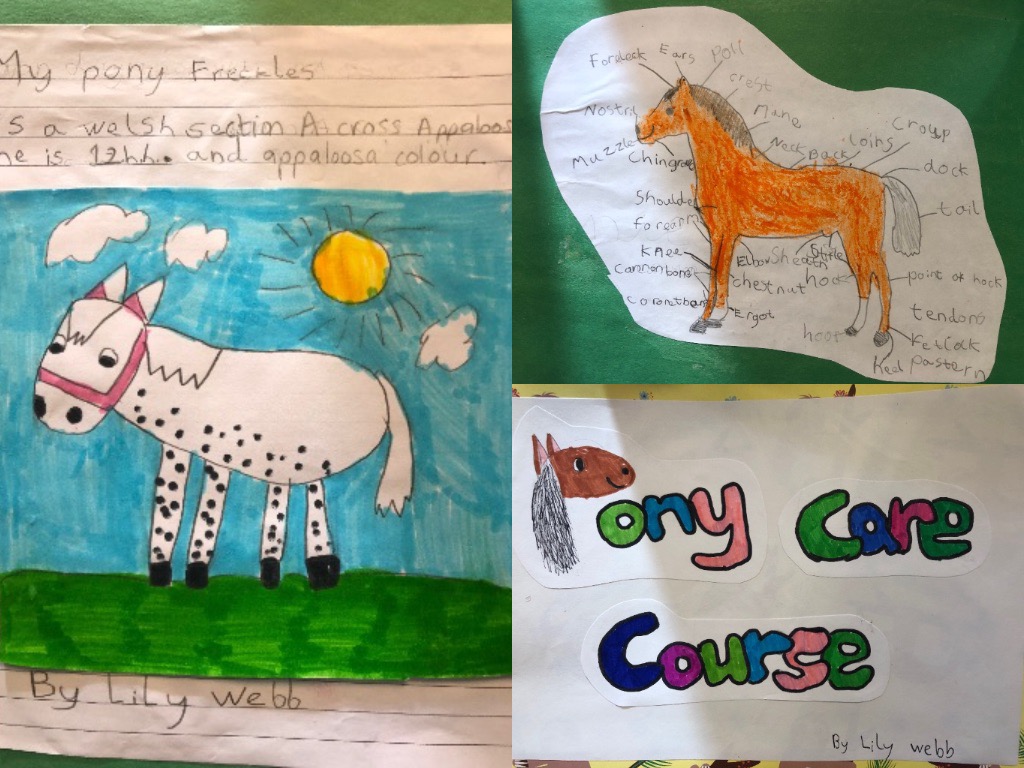 My pony Freckles
s a welsh section A cross Appaloos
he is 12h.h. and appaloosa colour.
By Lily Webb
Forelock Ears Poll
crest
Nostril Mane
Muzzle Neck Back loins Croup
dock
Shoulder tail
forearm
Knee Elbow Sheath Stifle
Cannonbone chestnut point of hock
Ergot tendons
hoof
Heel Pastern
Pony Care
Course
By Lily webb